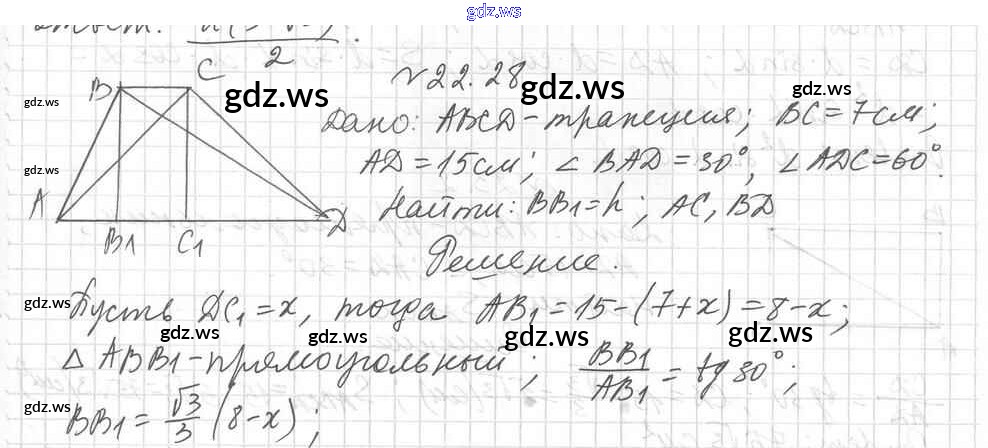 gdz.ws
2
№22.28
Дано: ABCD-трапеция; BC=7см;
AD=15см; ∠BAD=30°; ∠ADC=60°.
Найти: BB1=h; AC, BD
B C
A B1 C1 D
Решение.
Пусть DC₁=x, тогда AB₁=15-(7+x)=8-x;
Δ ABB1-прямоугольный; BB1/AB1 = tg 30°;
BB1 = √3/3 (8-x);
gdz.ws gdz.ws gdz.ws gdz.ws
gdz.ws
gdz.ws gdz.ws gdz.ws gdz.ws gdz.ws
gdz.ws